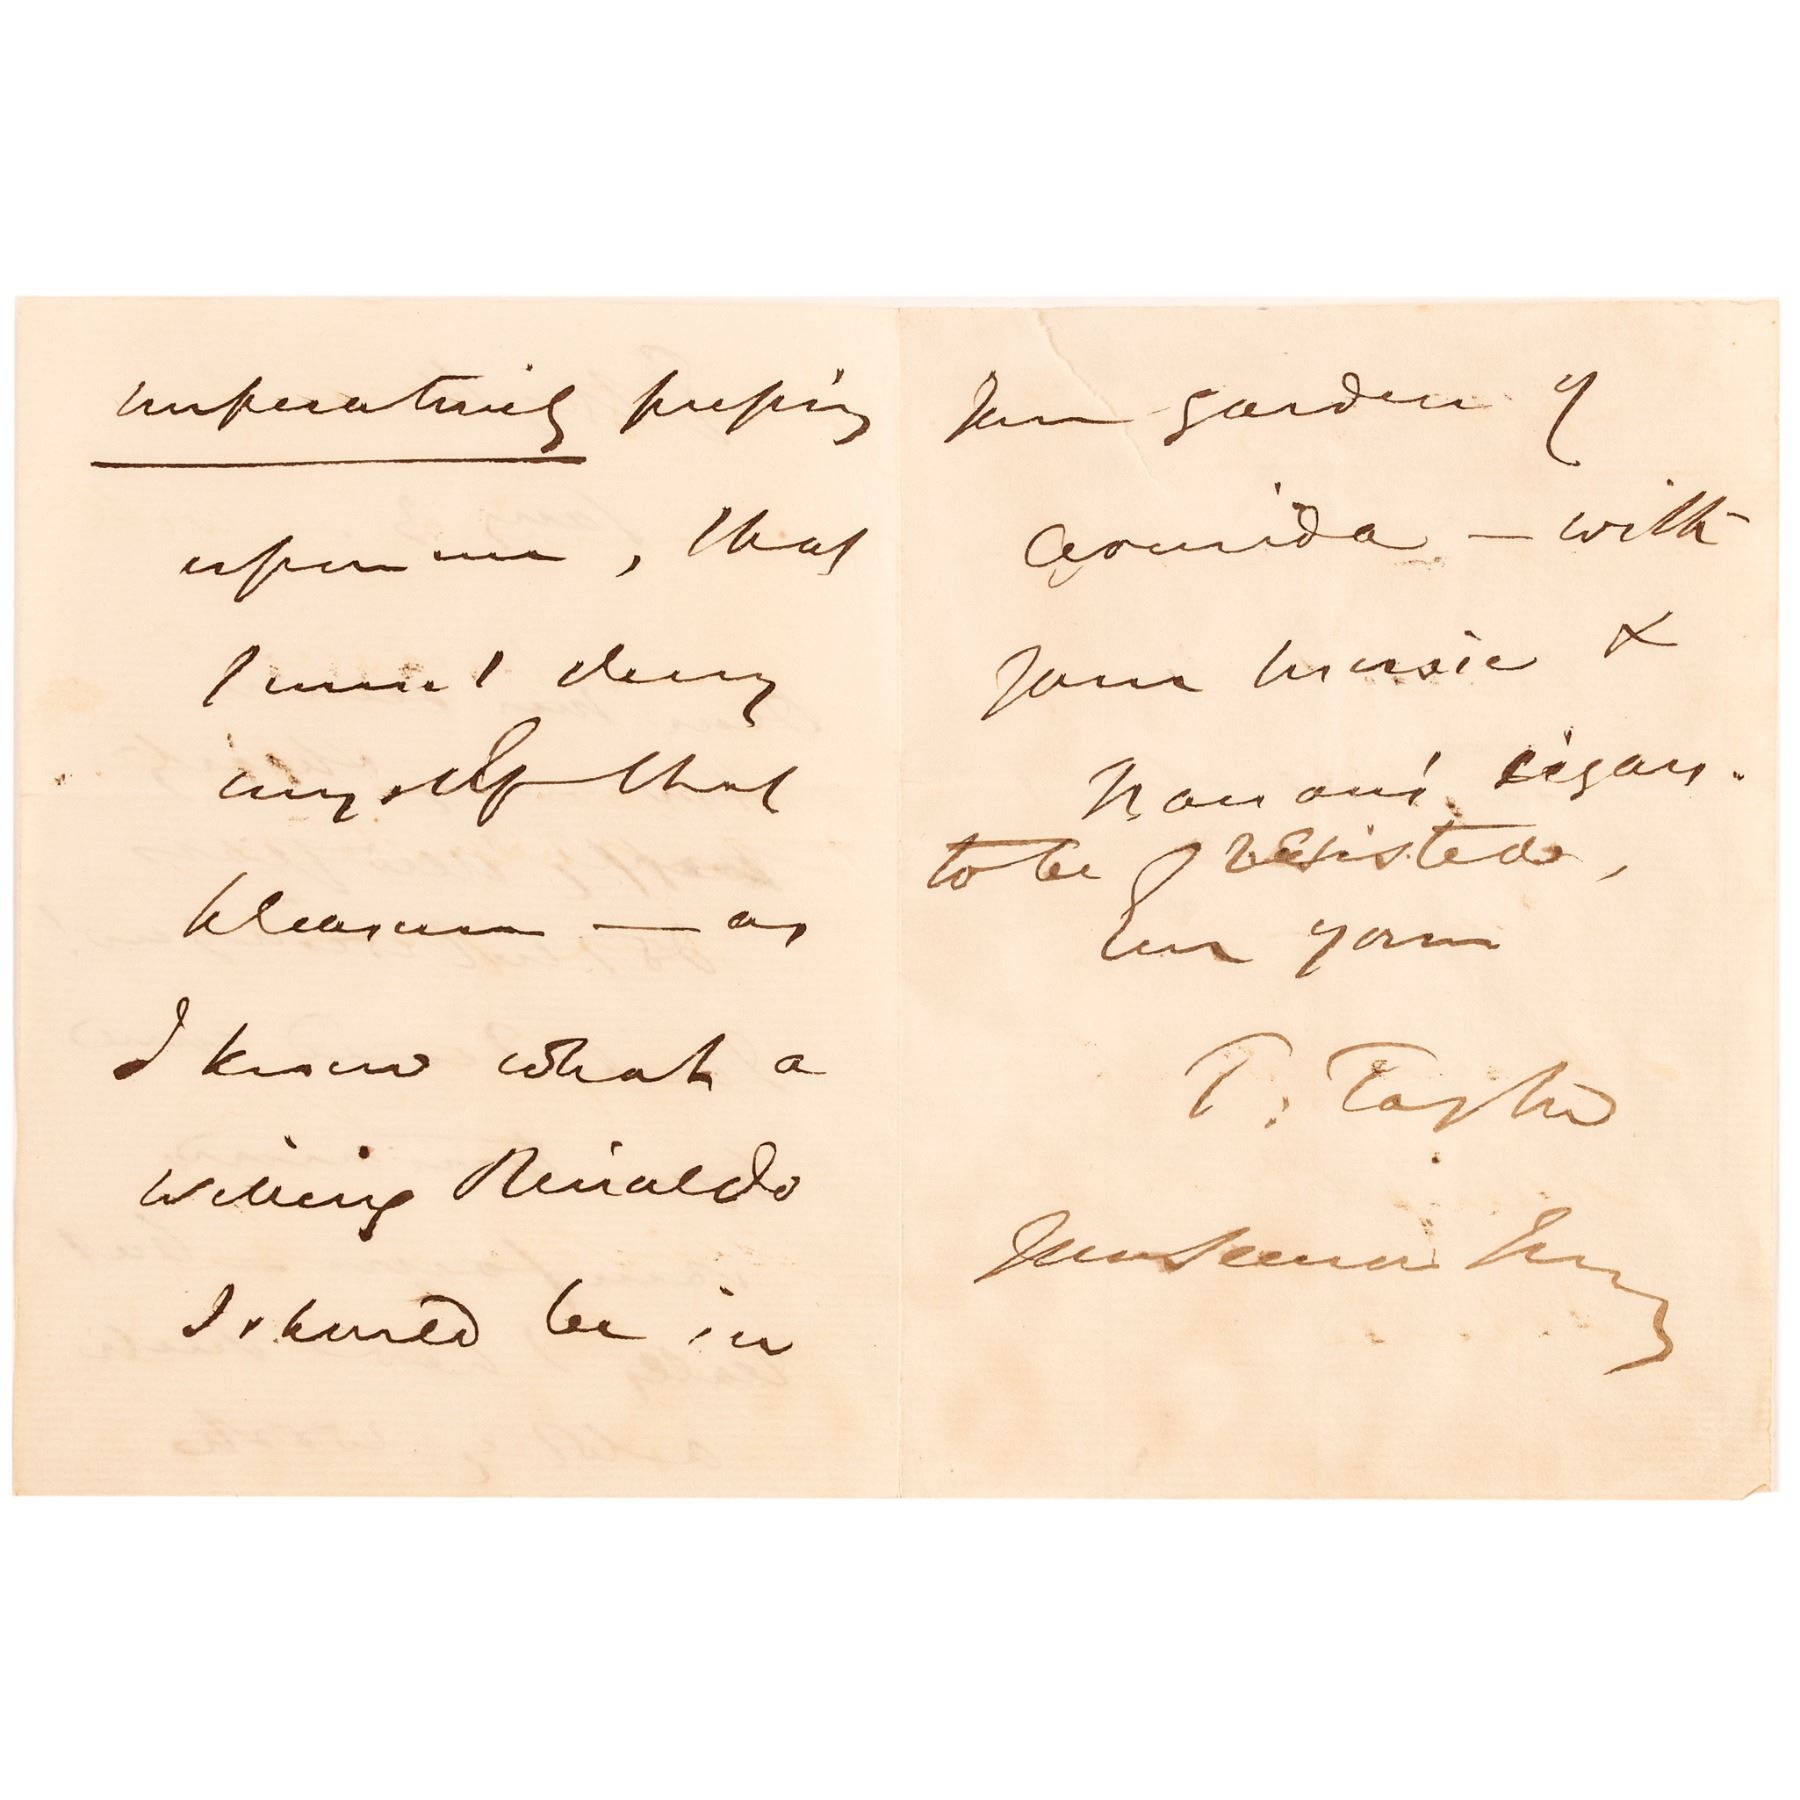 imperatively pressing
upon me, that
I must deny
myself that
pleasure — as
I know what a
willing Rinaldo
I should be in
your garden of
Armida — with
your music &
cigars.
to be resisted,
Ever yours
T. Taylor